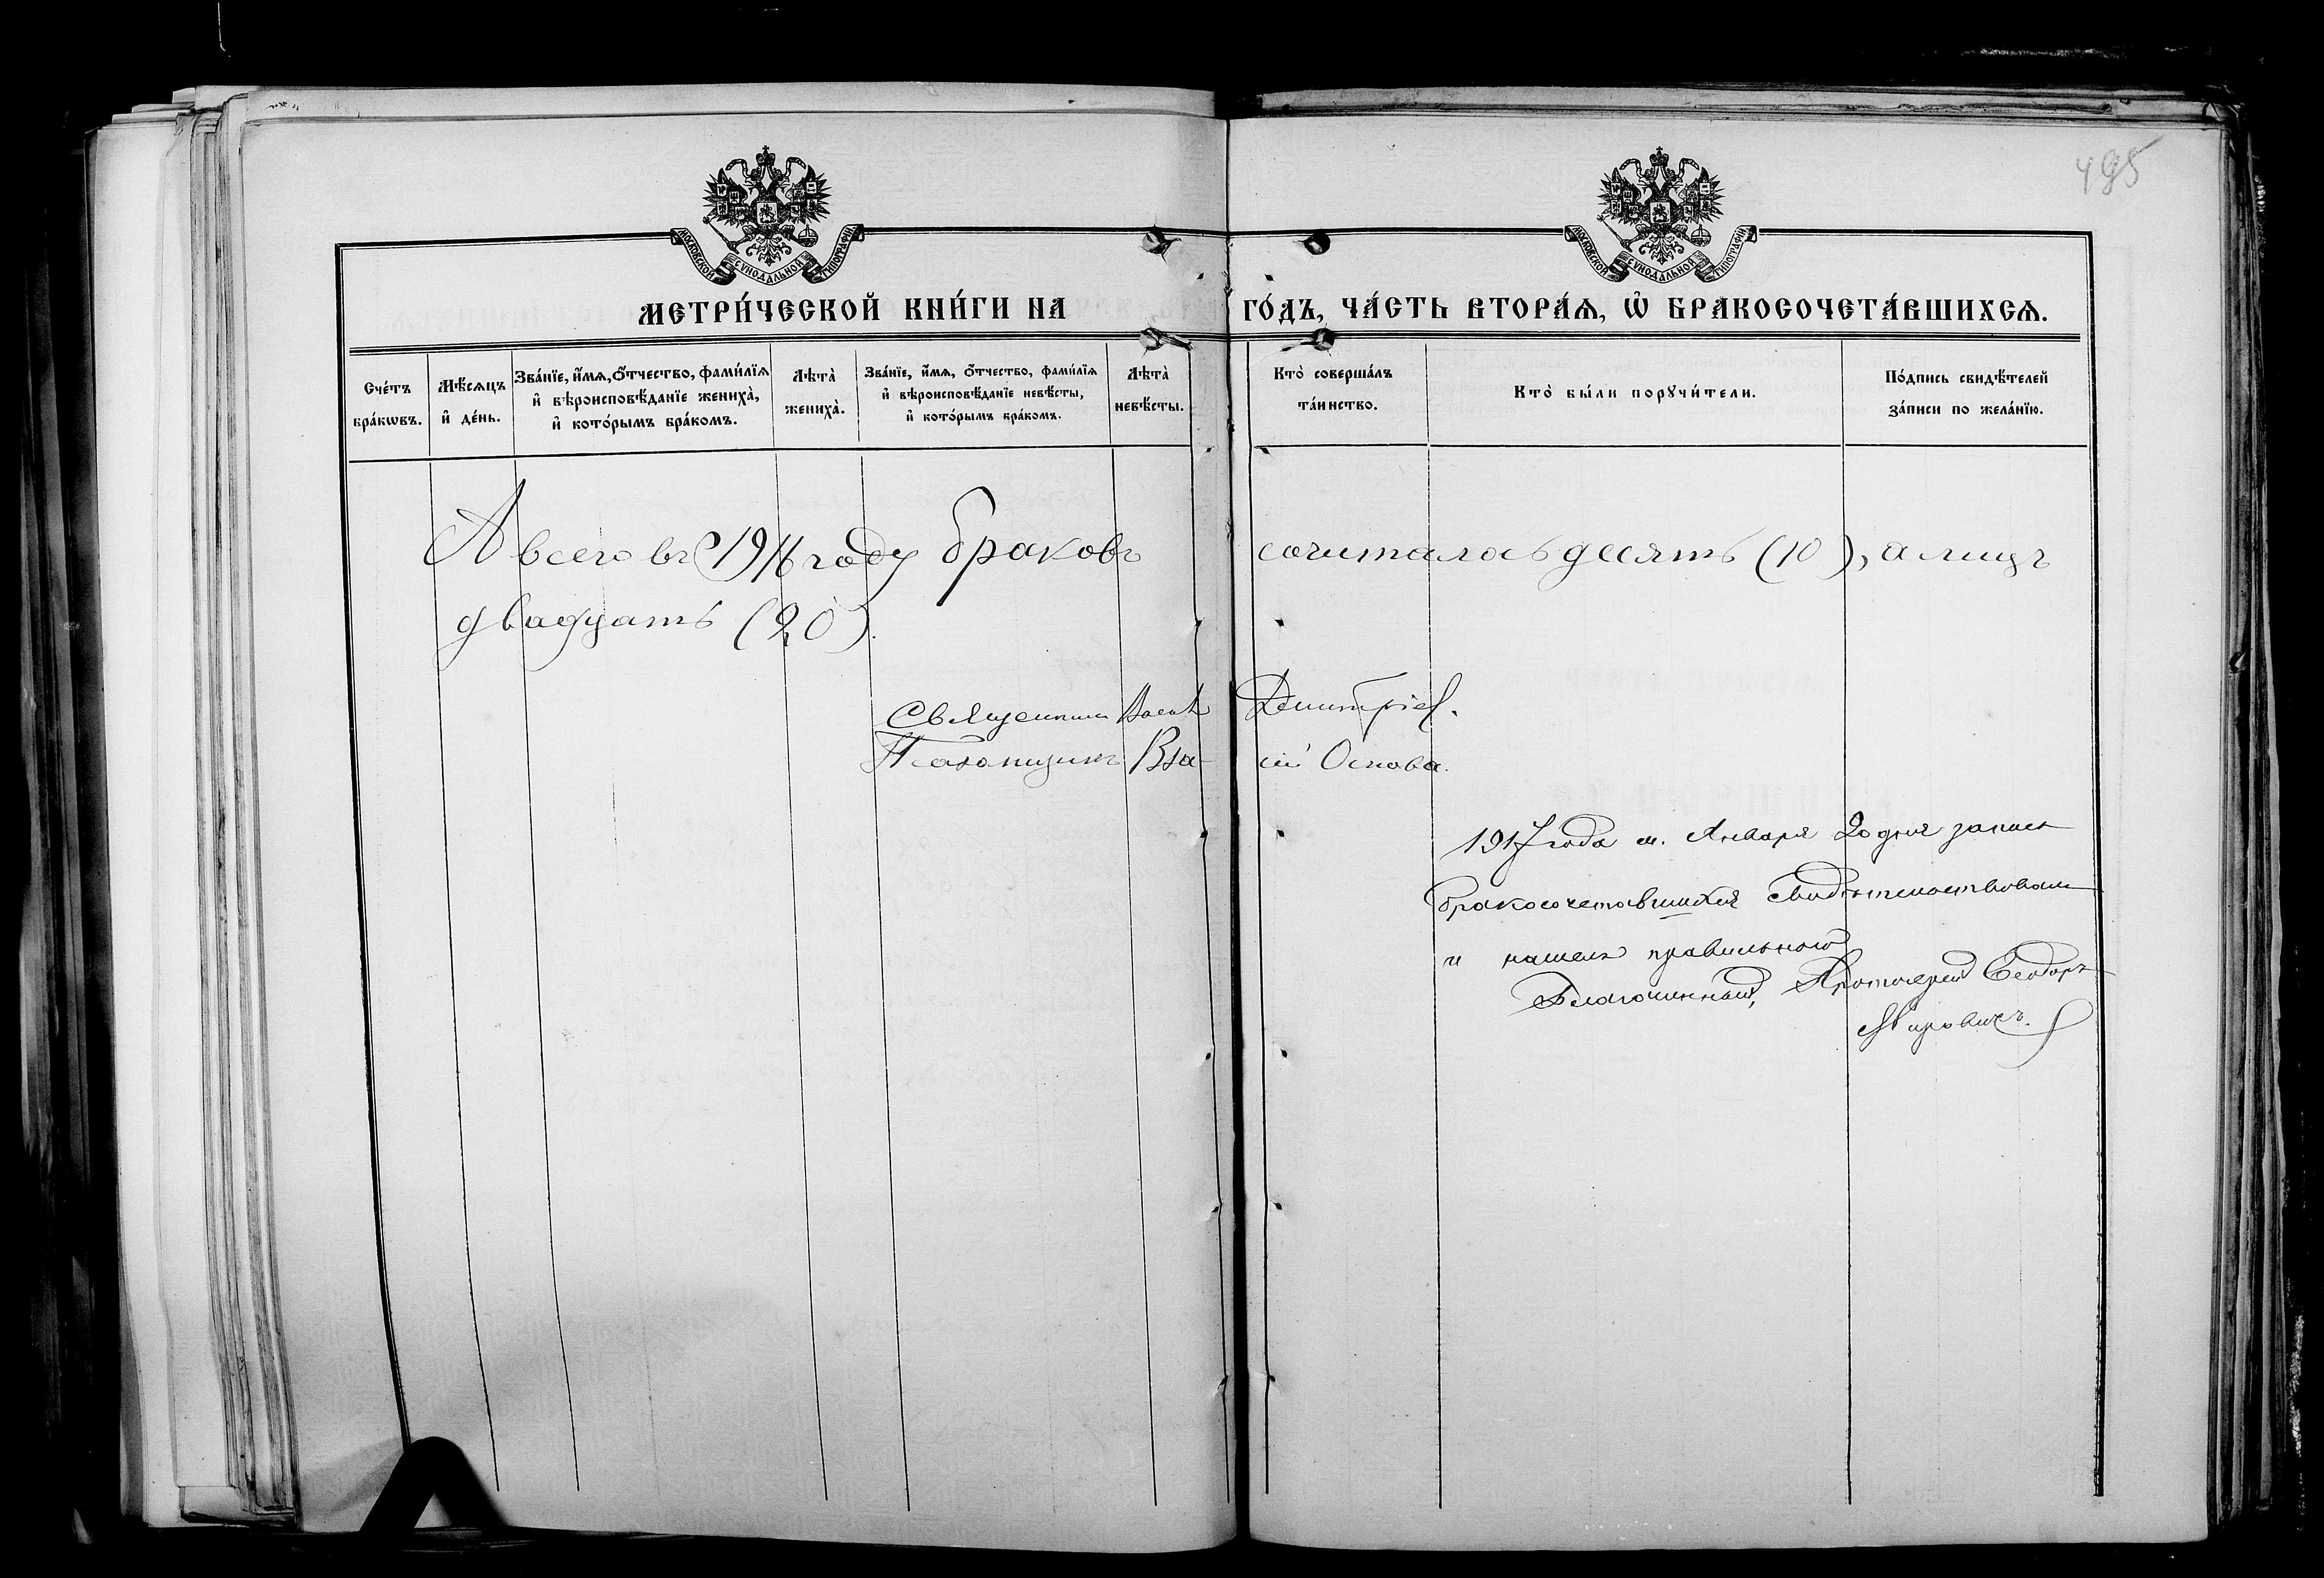 495
МОСКОВСКОЙ СУНОДАЛЬНОЙ ТИПОГРАФІИ
МОСКОВСКОЙ СУНОДАЛЬНОЙ ТИПОГРАФІИ
МЕТРИ́ЧЕСКОЙ КНИ́ГИ НА ГО́ДЪ, ЧА́СТЬ ВТОРА́Я, Ѡ҆ БРАКОСОЧЕТА́ВШИХСЯ.
Сче́тъ
бра́кѡвъ.
Мѣ́сяцъ
и҆ де́нь.
Зва́нїе, и҆́мя, ѻ҆́тчество, фами́лїя
и҆ вѣроисповѣ́данїе жениха̀,
и҆ кото́рымъ бра́комъ.
Лѣта̀
жениха̀.
Зва́нїе, и҆́мя, ѻ҆́тчество, фами́лїя
и҆ вѣроисповѣ́данїе невѣ́сты,
и҆ кото́рымъ бра́комъ.
Лѣта̀
невѣ́сты.
Кто̀ соверша́лъ
та́инство.
Кто̀ бы́ли порꙋчи́тели.
По́дпись свидѣ́телей
за́писи по жела́нїю.
А всего въ 1916 году браковъ сочиталось десять (10), а лицъ
двадцать (20).
Священникъ Димитріев.
Псаломщикъ Основа.
1917 года м. Января 20 дня запись
бракосочетавшихся свидѣтельствовалъ
и нашелъ правильною
Благочинный, Протоіерей Ѳеодоръ
Мировичъ.